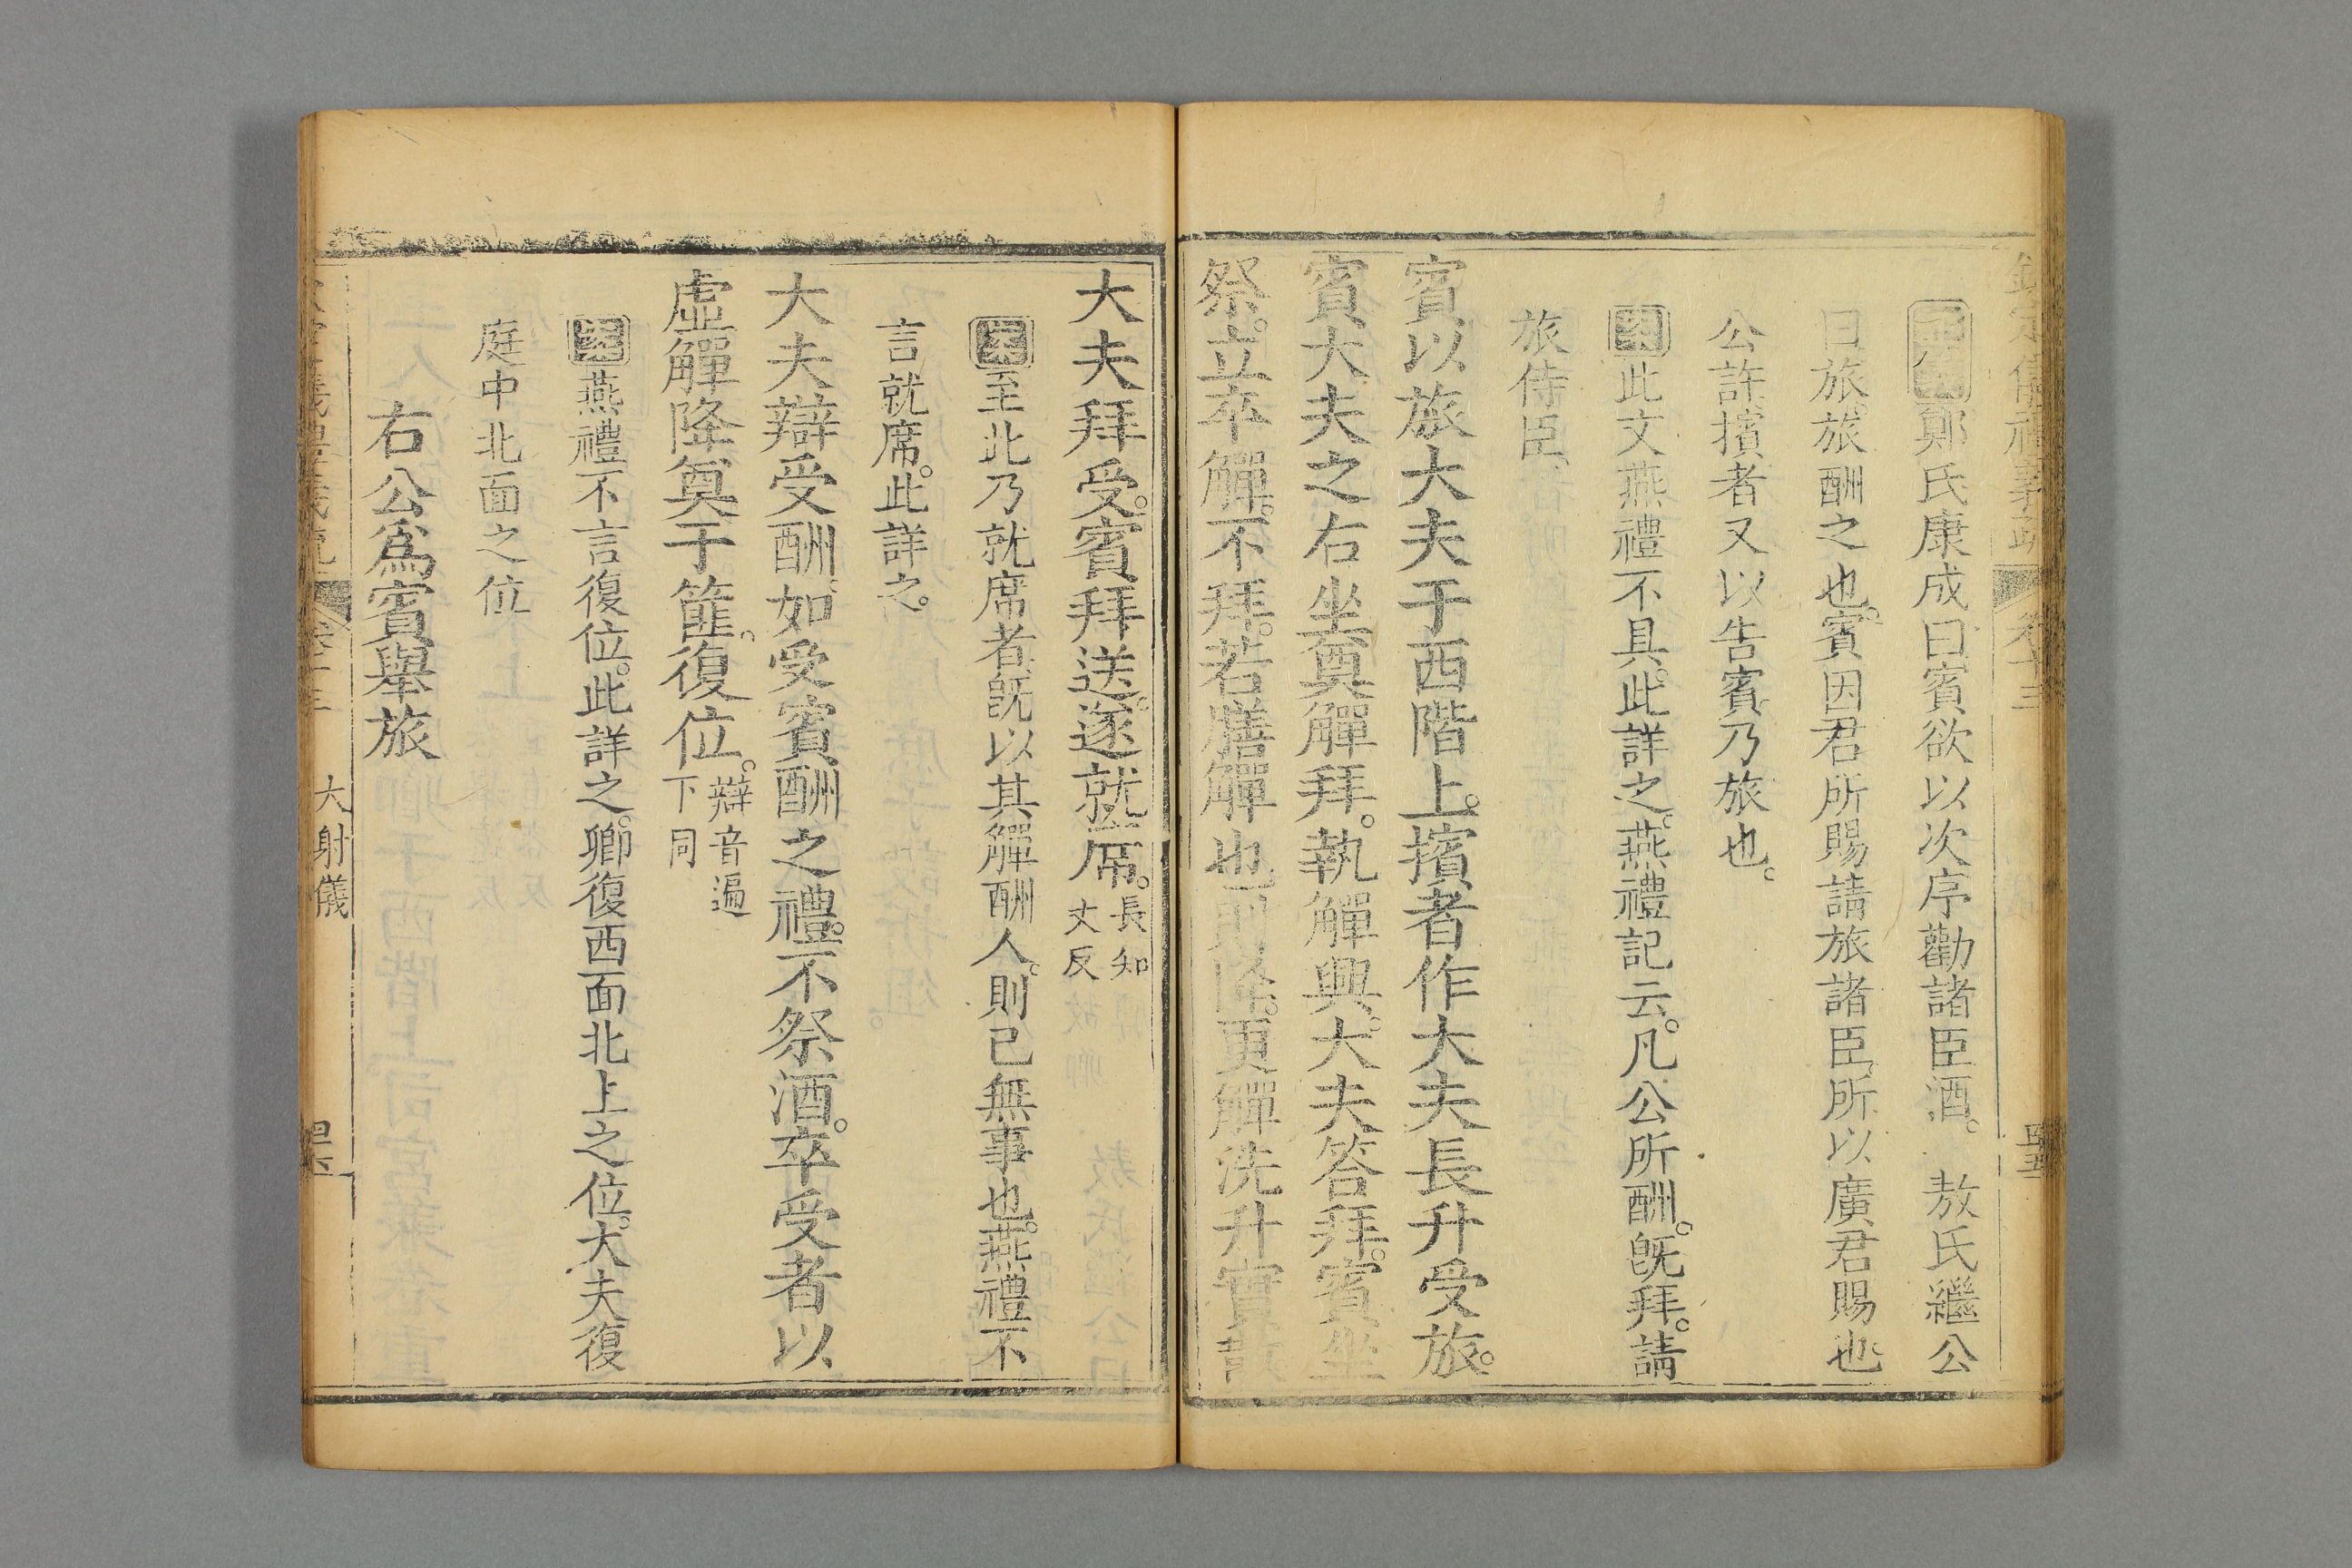 鄭氏康成曰賓欲以次序勸諸臣酒。　敖氏繼公
曰旅旅酬之也。賓因君所賜請旅諸臣所以廣君賜也
公許擯者又以告賓乃旅也。
此文燕禮不具。此詳之。燕禮記云。凡公所酬。旣拜。請
旅侍臣。
賓以旅大夫于西階上。擯者作大夫長升受旅。
賓大夫之右坐奠觶拜。執觶興。大夫答拜。賓坐
祭。立卒觶。不拜。若膳觶也則降。更觶洗升實散
大夫拜受。賓拜送。遂就席。長知
丈反
至此乃就席者。旣以其觶酬人。則已無事也。燕禮不
言就席。此詳之。
大夫辯受酬如受賓酬之禮。不祭酒。卒受者以
虛觶降奠于篚。復位。辯音遍
下同
燕禮不言復位。此詳之。卿復西面北上之位。大夫復
庭中北面之位
右公爲賓舉旅
大射儀